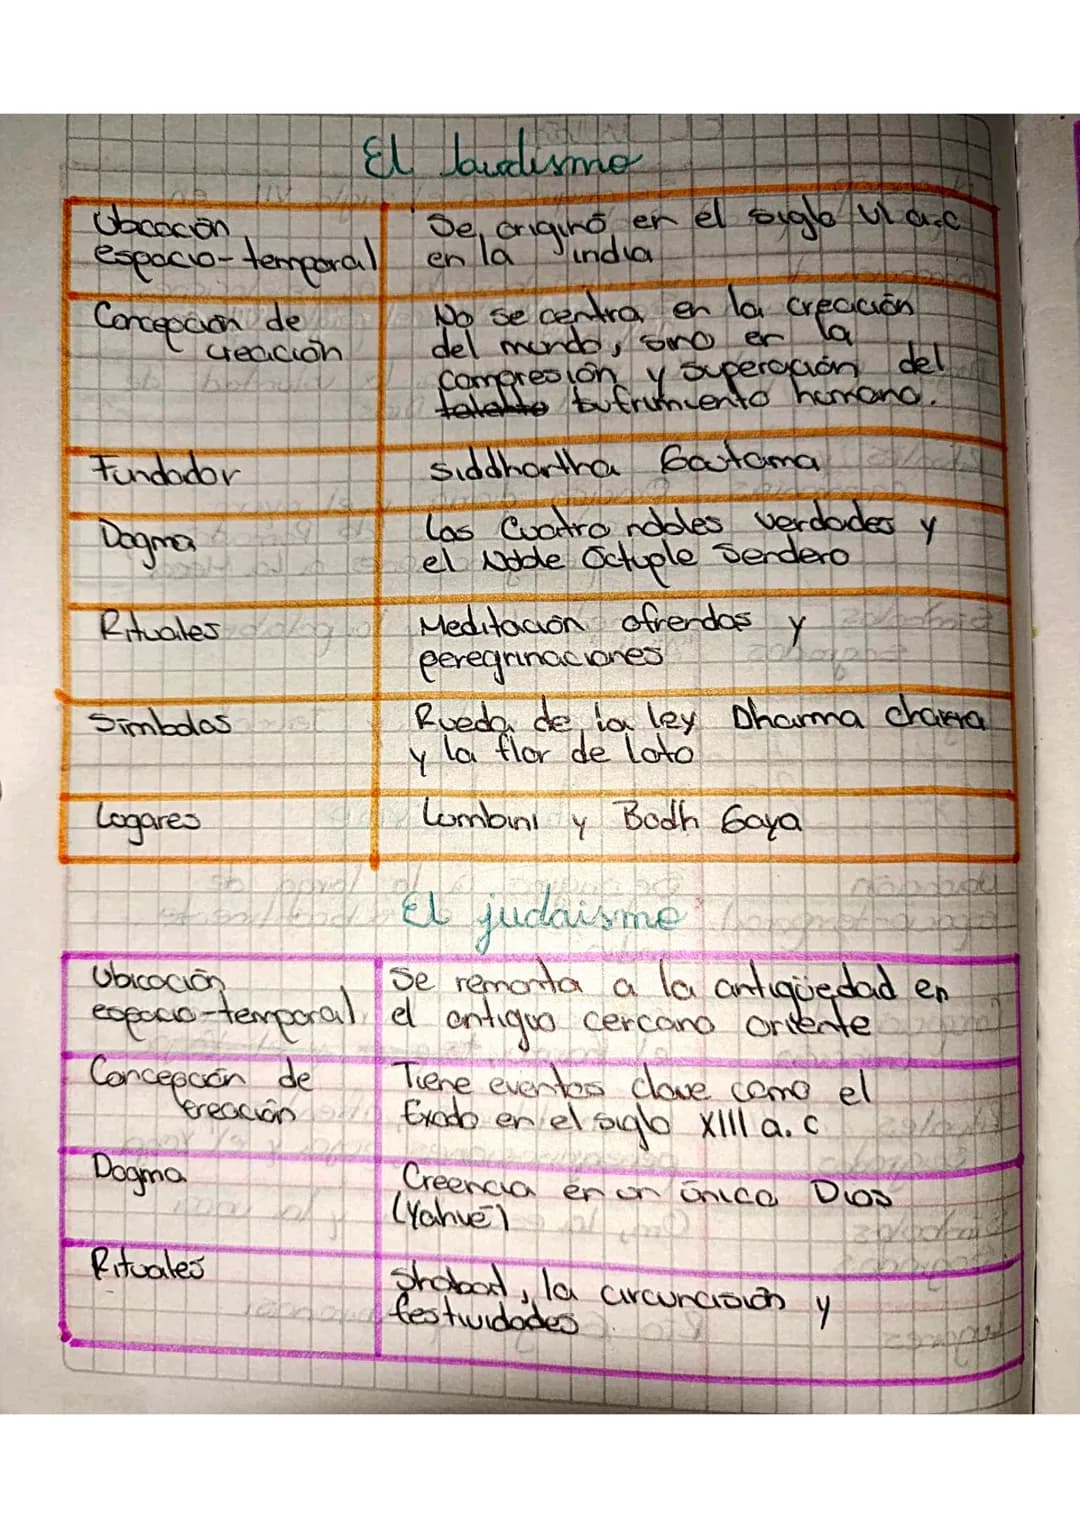 El budismo
Ubicación
espacio-temporal
Se originó en el siglo VI a.c
en la india
Concepción de
creación
No se centra en la creación
del mundo, sino en la
compresión y superación del
sufrimiento humano.
Fundador
siddhartha Gautama
Dogma
Las Cuatro nobles verdades y
el Noble Óctuple Sendero
Rituales
Meditación ofrendas y
peregrinaciones
Símbolos
Rueda de la ley Dharma chakra
y la flor de loto
Lugares
Lumbini y Bodh Gaya
El judaísmo
Ubicación
espacio-temporal
Se remonta a la antigüedad en
el antiguo cercano oriente
Concepción de
creación
Tiene eventos clave como el
Éxodo en el siglo XIII a. c
Dogma
Creencia en un único Dios
(Yahvé)
Rituales
Shabbat, la circuncisión y
festividades